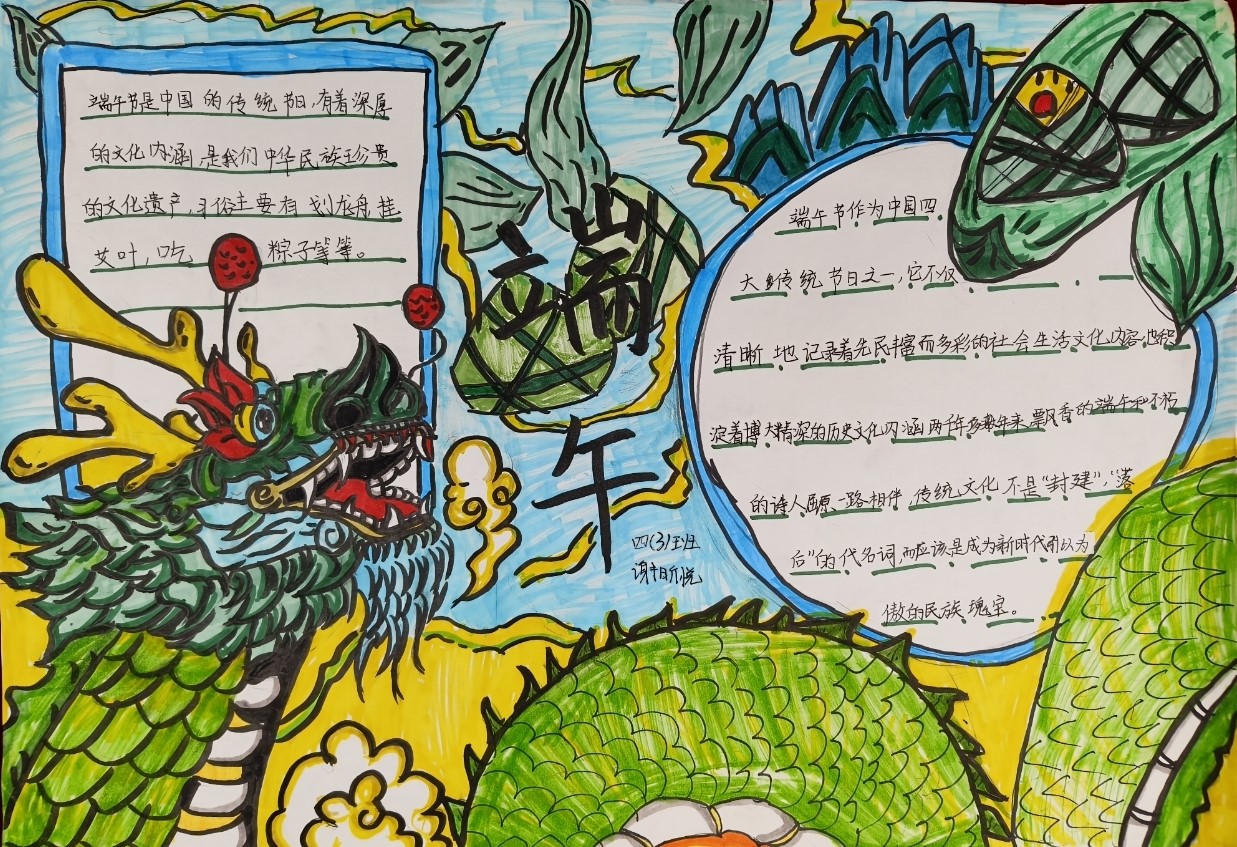 端午节是中国的传统节日,有着深厚
的文化内涵,是我们中华民族珍贵
的文化遗产,习俗主要有划龙舟,挂
艾叶,吃粽子等等。
端
午
四(3)班
谢昕悦
端午节作为中国四
大传统节日之一,它不仅
清晰地记录着先民丰富而多彩的社会生活文化内容,也积
淀着博大精深的历史文化内涵两千年多来飘香的端午和不朽
的诗人屈原一路相伴,传统文化不是“封建”,“落
后”的代名词,而应该是成为新时代引以为
傲的民族瑰宝。